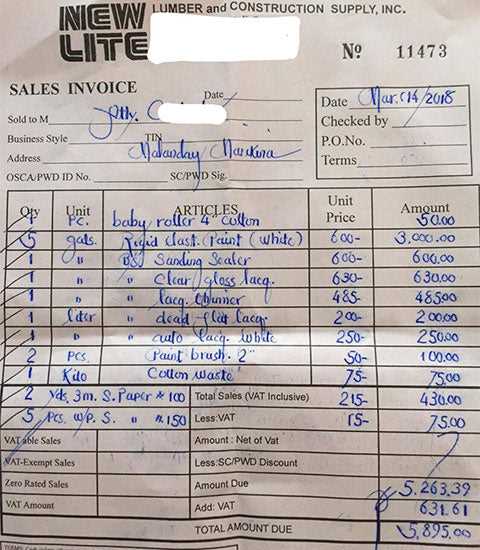 NEW LITE LUMBER and CONSTRUCTION SUPPLY, INC.
Nº 11473
SALES INVOICE
Date
Date Mar. 14/2018
Sold to M
Checked by
Business Style TIN
P.O.No.
Address Malanday Marikina
Terms
OSCA/PWD ID No. SC/PWD Sig.
Qty Unit ARTICLES Unit Price Amount
1 Pc. baby roller 4" Cotton 50.00
5 gals. Rigid Elast. Paint (White) 600- 3,000.00
1 " Sanding Sealer 600- 600.00
1 " " Clear gloss lacq. 630- 630.00
1 " " lacq. thinner 485- 485.00
1 liter " dead flat lacq. 200- 200.00
1 " " auto lacq. White 250- 250.00
2 pcs. Paint brush 2" 50- 100.00
1 Kilo Cotton waste 75- 75.00
2 yds. 3m. S. Paper # 100 Total Sales (VAT Inclusive) 215- 430.00
5 pcs. w/p. S. " #150 Less:VAT 15- 75.00
VATable Sales Amount : Net of Vat
VAT-Exempt Sales Less:SC/PWD Discount
Zero Rated Sales Amount Due 5,263.39
VAT Amount Add: VAT 631.61
TOTAL AMOUNT DUE 5,895.00